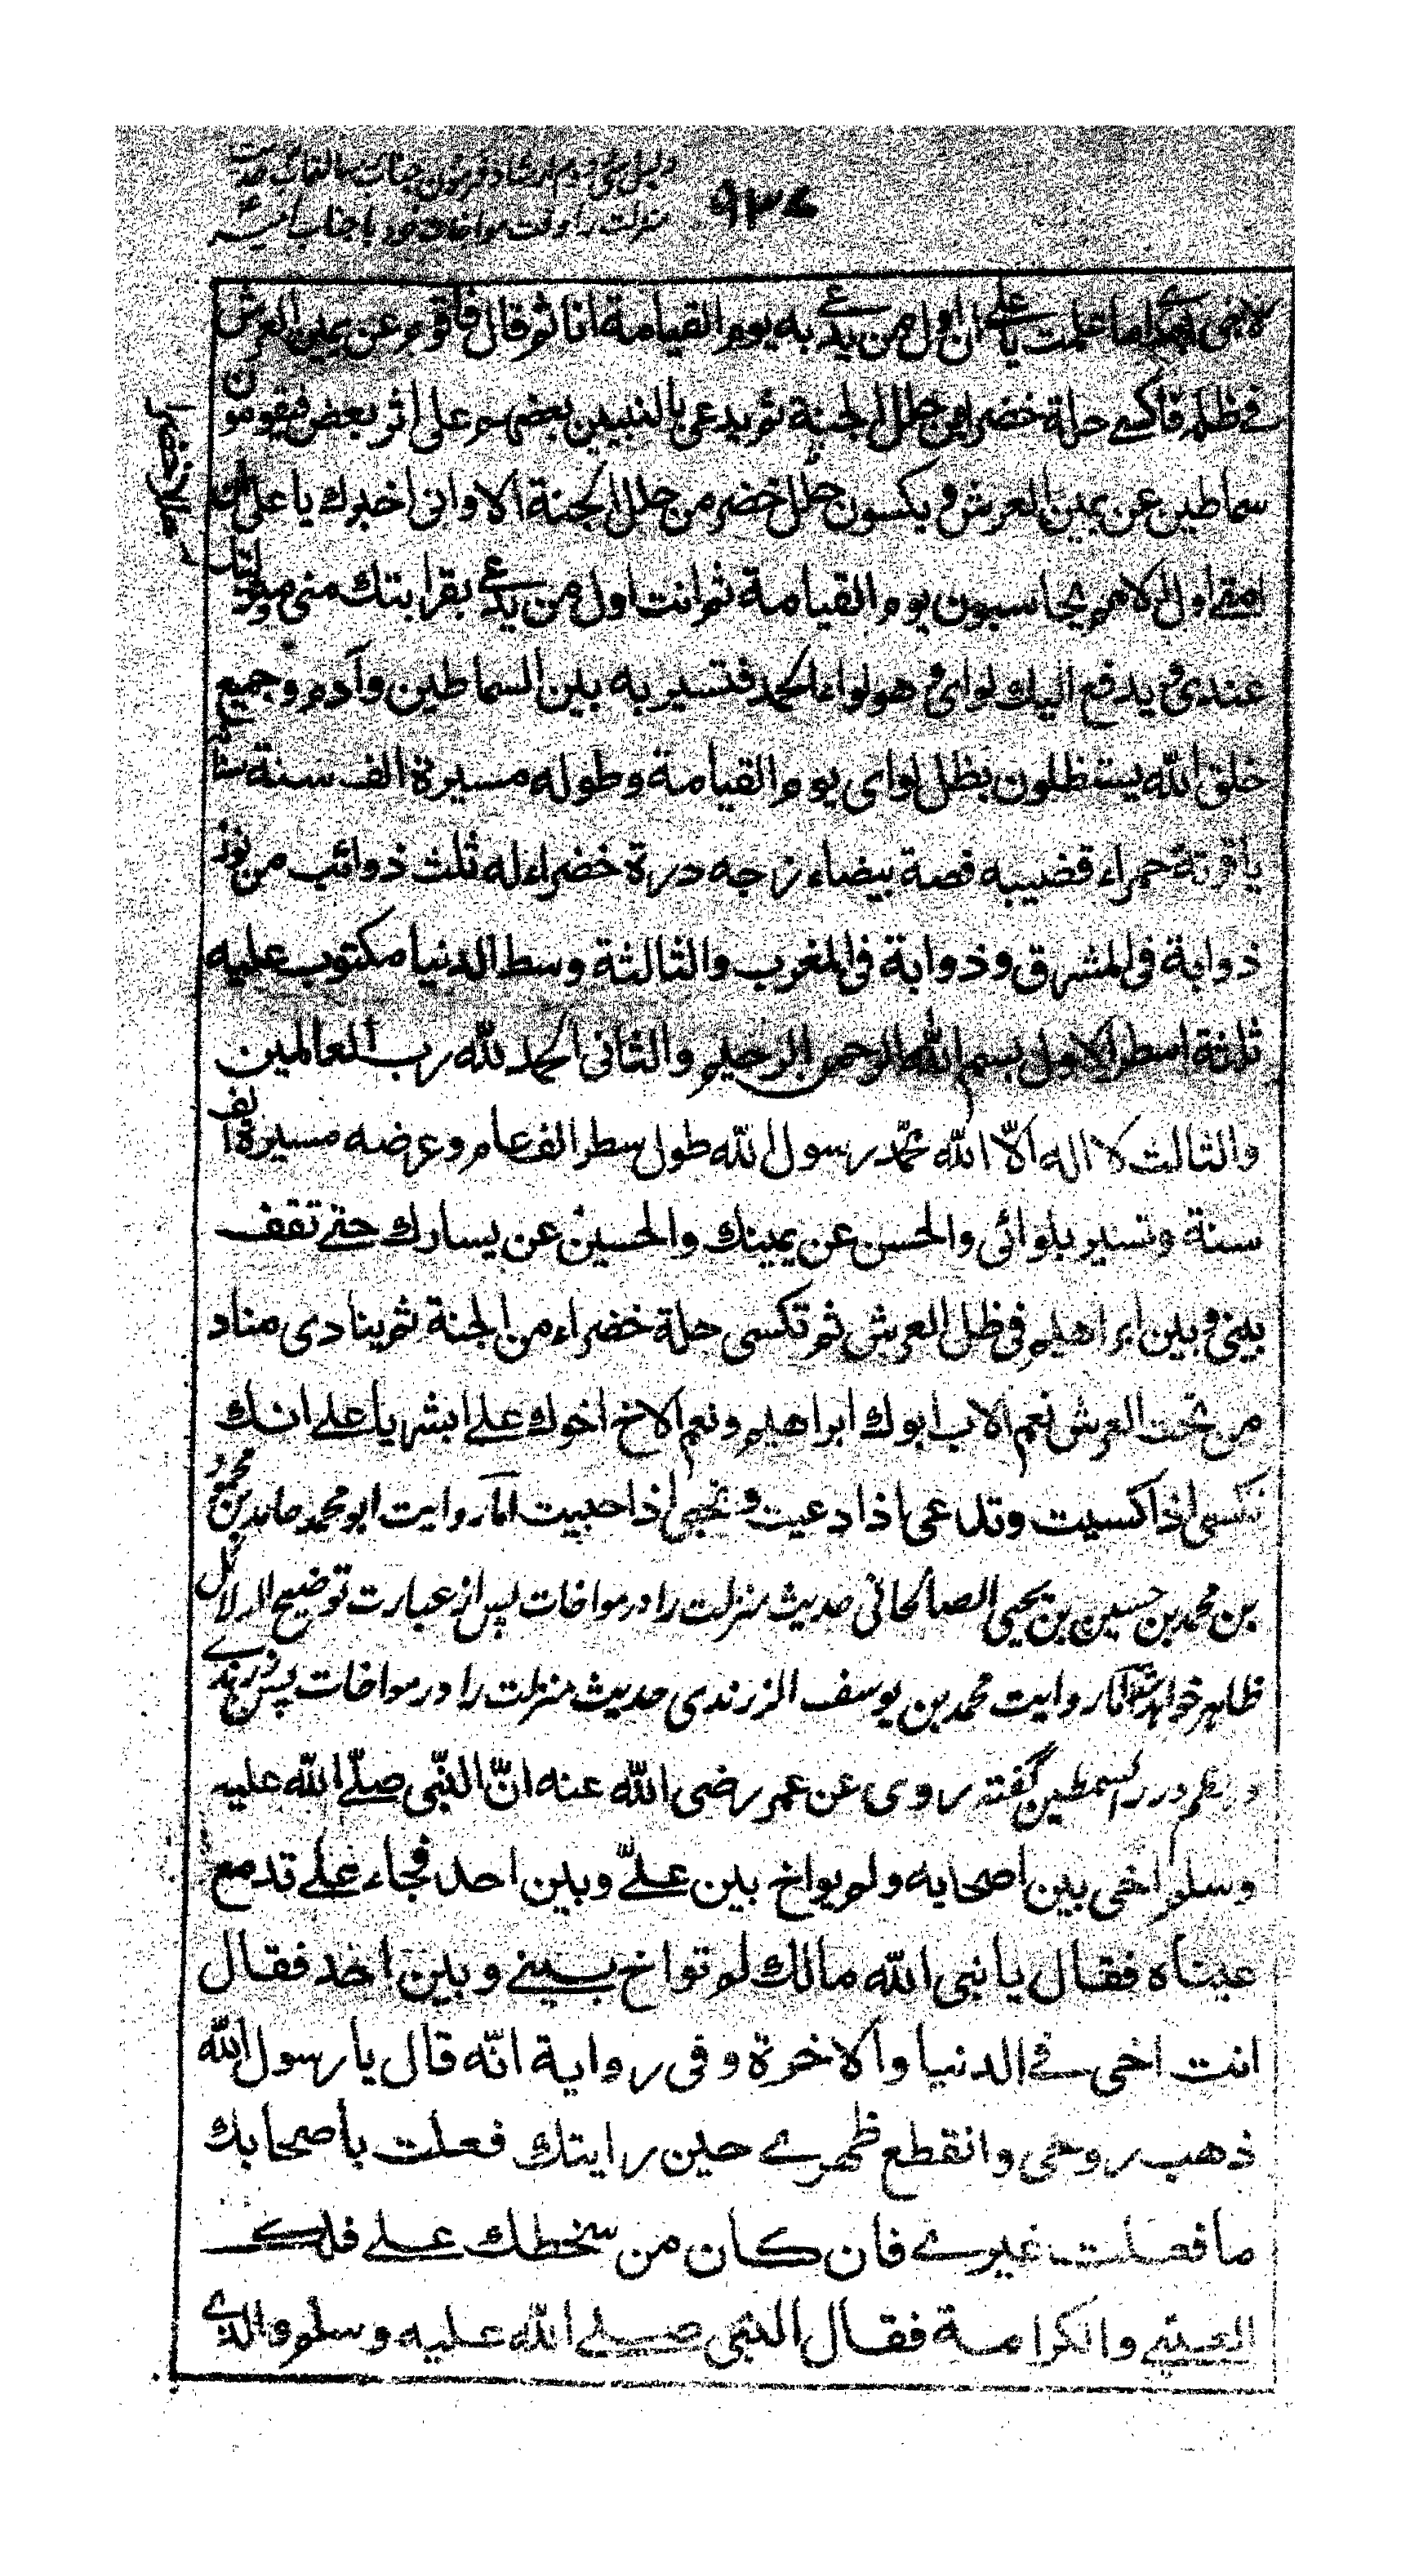 دلیل سی و دوم ارشاد فرمودن جناب رسالتمآب حدیث
منزلت را وقت مواخات خود با جناب امیر
۹۳۷
لا نبی بعدی اما علمت یا علی ان اول من یدعی به یوم القیامة انا ثم قال فاقوم عن یمین العرش
فی ظله فاکسی حلة خضرا من حلل الجنة ثم یدعی بالنبیین بعضهم علی اثر بعض فیقومون
سماطین عن یمین العرش و یکسون حللا خضر من حلل الجنة الا وانی اخبرك یا علی ان
امتی اول الامم یحاسبون یوم القیامة ثم انت اول من یدعی بقرابتك منی و منزلتك
عندی و یدفع الیك لوای و هو لواء الحمد فتسیر به بین السماطین و آدم و جمیع
خلق الله یستظلون بظل لوای یوم القیامة و طوله مسیرة الف سنة سنانه
یاقوتة حمراء قضیبه فضة بیضاء زجه درة خضراء له ثلث ذوائب من نور
ذوابة فی المشرق و ذوابة فی المغرب والثالثة وسط الدنیا مکتوب علیه
ثلثة اسطر الاول بسم الله الرحمن الرحیم والثانی الحمد لله رب العالمین
والثالث لا اله الّا الله محمّد رسول الله طول سطر الف عام و عرضه مسیرة الف
سنة و تسیر بلوائی والحسن عن یمینك والحسین عن یسارك حتی تقف
بینی و بین ابراهیم فی ظل العرش ثم تکسی حلة خضراء من الجنة ثم ینادی مناد
من تحت العرش نعم الاب ابوك ابراهیم و نعم الاخ اخوك علی ابشر یا علی انك
تکسی اذا کسیت و تدعی اذا دعیت و تحیی اذا حییت اما روایت ابو محمد حامد بن محمود
بن محمد بن حسین بن یحیی الصالحانی حدیث منزلت را در مواخات پس از عبارت توضیح الدلائل
ظاهر خواهد شد اما روایت محمد بن یوسف الزرندی حدیث منزلت را در مواخات پس زرندی
در نظم درر السمطین گفته روی عن عمر رضی الله عنه انّ النّبی صلّی الله علیه
وسلم اخی بین اصحابه ولم یواخ بین علیّ و بین احد فجاء علی تدمع
عیناه فقال یا نبی الله مالك لم تواخ بینی و بین احد فقال
انت اخی فی الدنیا والاخرة و فی روایة انّه قال یا رسول الله
ذهب روحی وانقطع ظهری حین رایتك فعلت باصحابك
ما فعلت غیری فان کان من سخطك علی فلك
العتبی والکرامة فقال النبی صلی الله علیه وسلم والذی